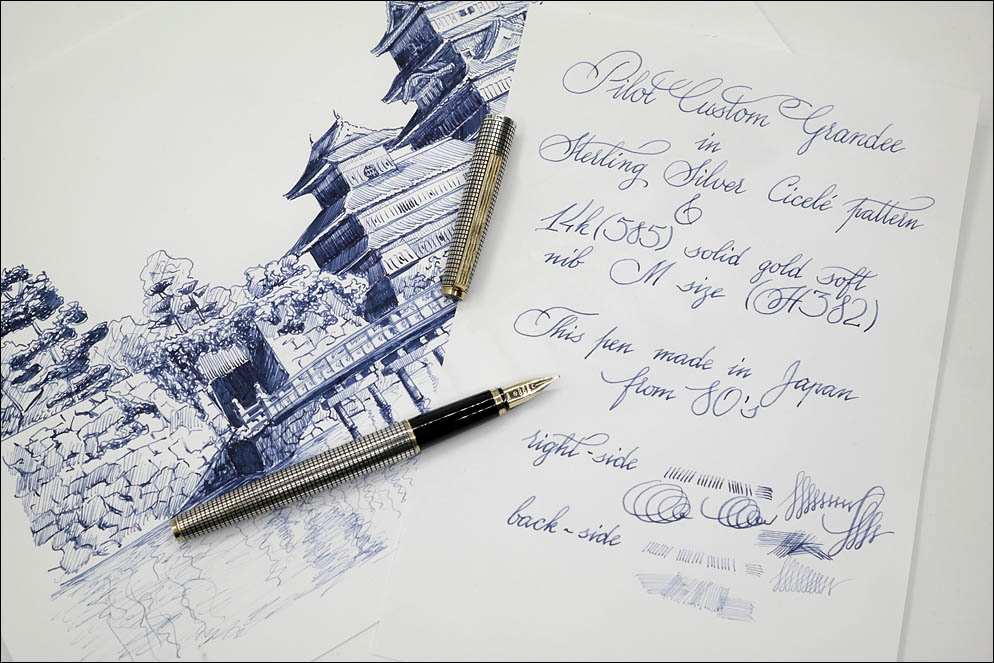 Pilot Custom Grandee
in
Sterling Silver Cicelé pattern
&
14k (585) solid gold soft
nib M size (H382)
This pen made in Japan
from 80's
right-side
back-side